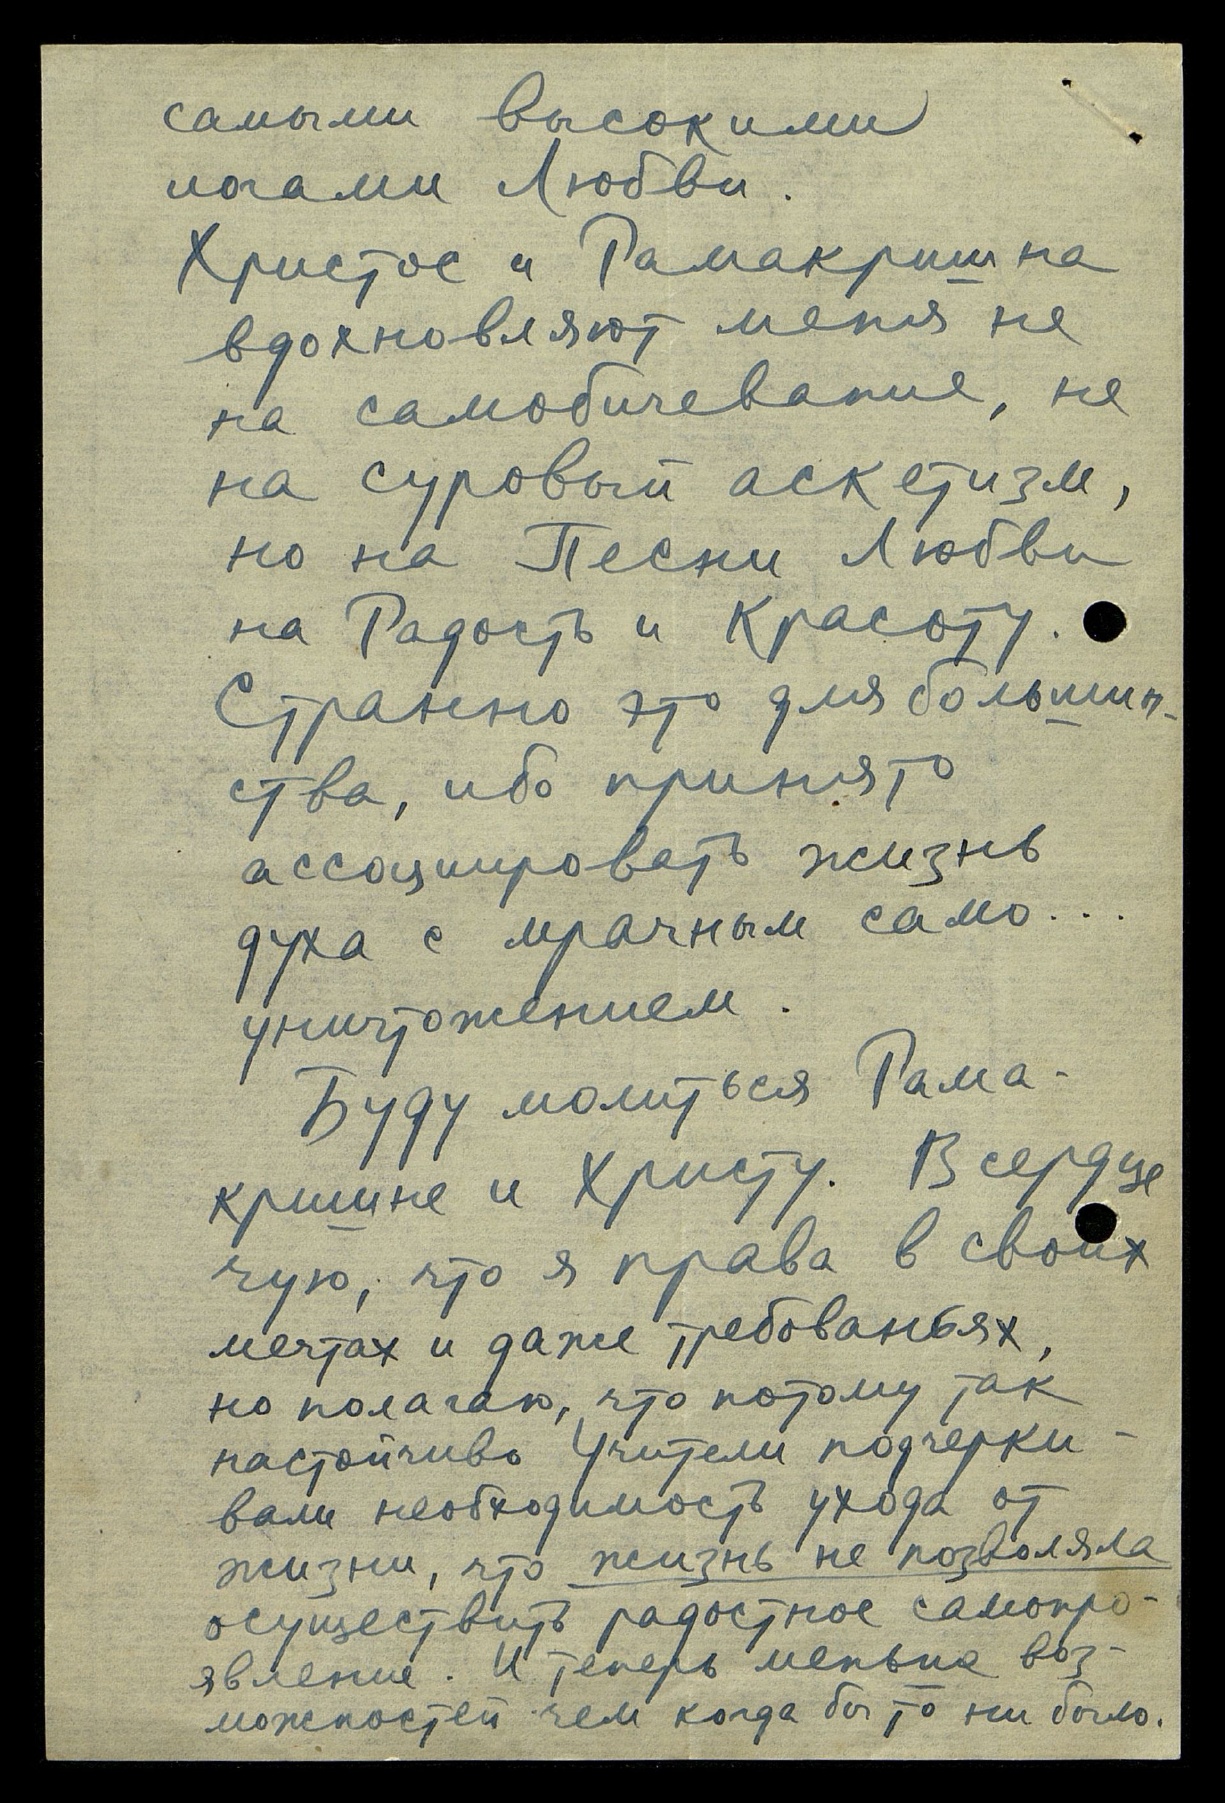 самыми высокими
ногами Любви.
Христос и Рамакришна
вдохновляют меня не
на самобичевание, не
на суровый аскетизм,
но на Песни Любви
на Радость и Красоту.
Странно это для большин-
ства, ибо принято
ассоциировать жизнь
духа с мрачным само...
уничтожением.
Буду молиться Рама-
кришне и Христу. В сердце
чую, что я права в своих
мечтах и даже требованьях,
но полагаю, что потому так
настойчиво Учители подчерки-
вали необходимость ухода от
жизни, что жизнь не позволяла
осуществить радостное самопро-
явление. И теперь меньше воз-
можностей чем когда бы то ни было.